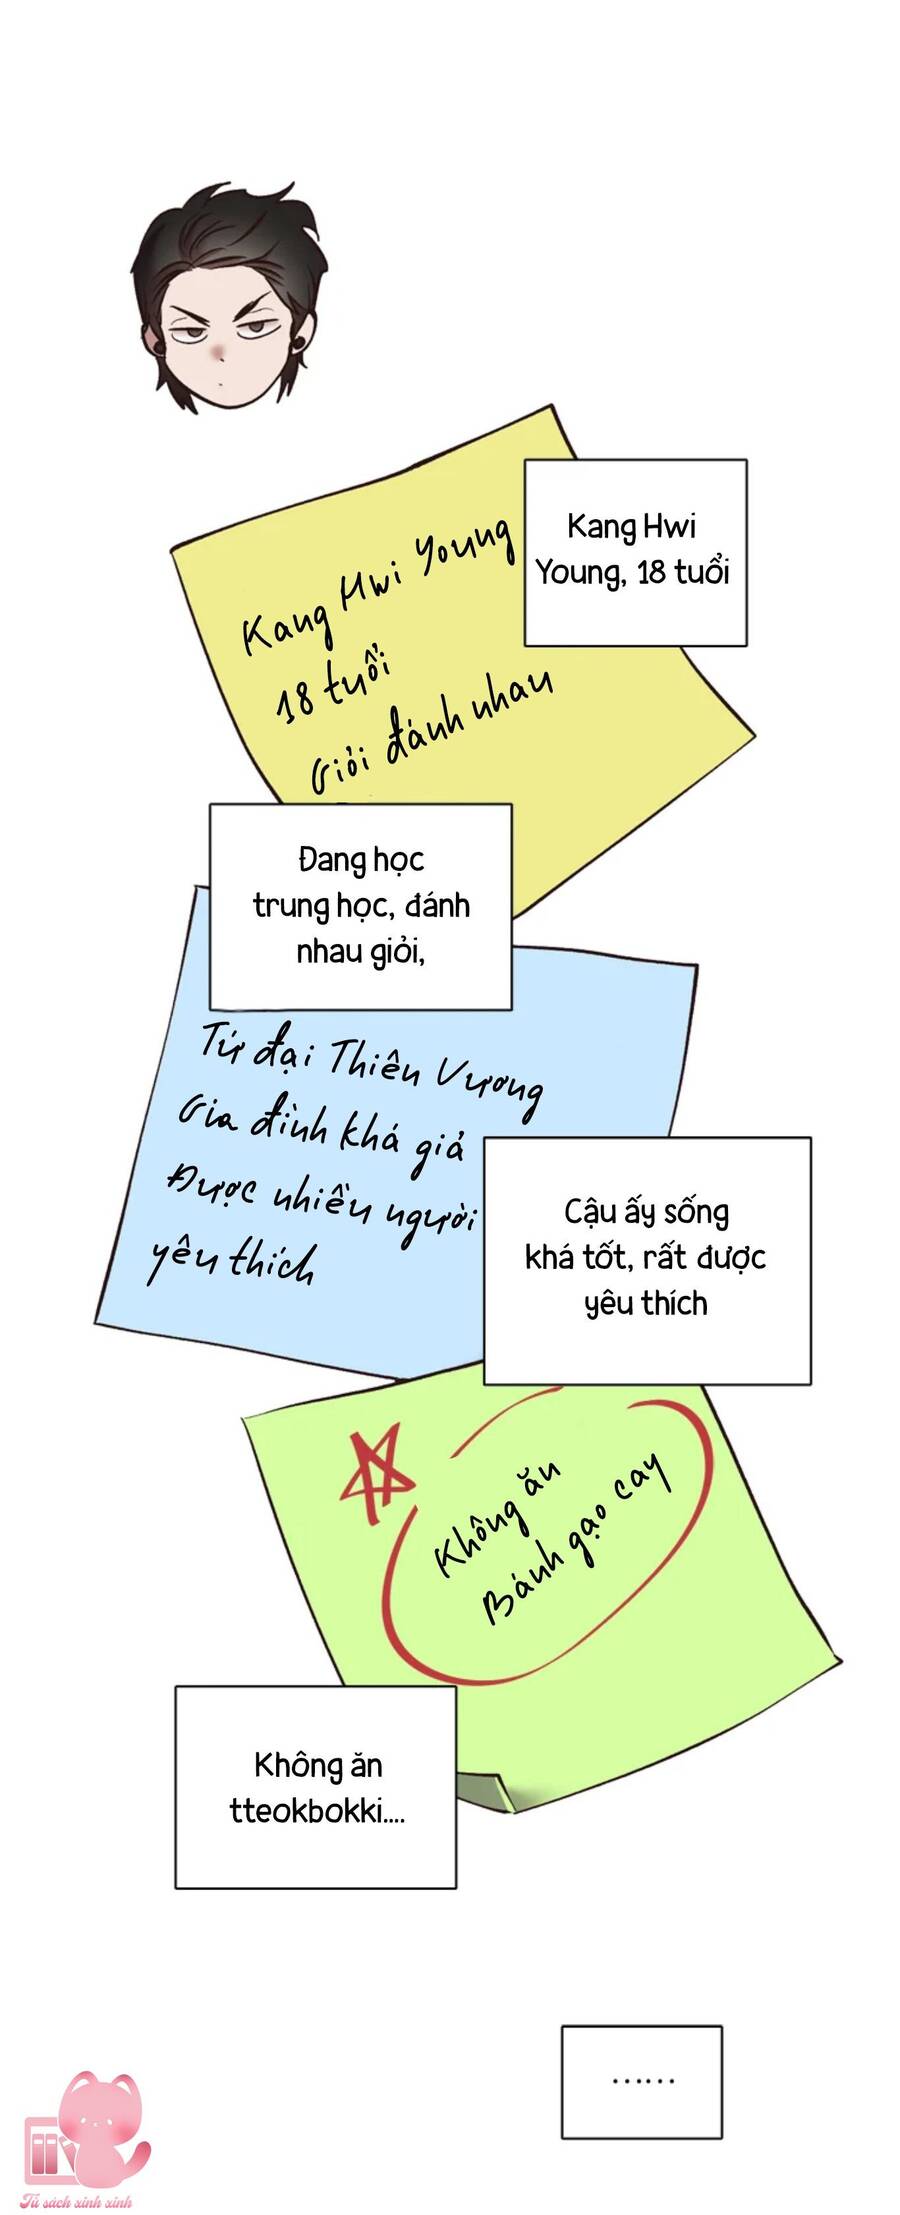 Kang Hwi Young
18 tuổi
Giỏi đánh nhau
Kang Hwi
Young, 18 tuổi
Đang học
trung học, đánh
nhau giỏi,
Tứ đại Thiên Vương
Gia đình khá giả
Được nhiều người
yêu thích
Cậu ấy sống
khá tốt, rất được
yêu thích
Không ăn
Bánh gạo cay
Không ăn
tteokbokki....
......
Tủ sách xinh xinh